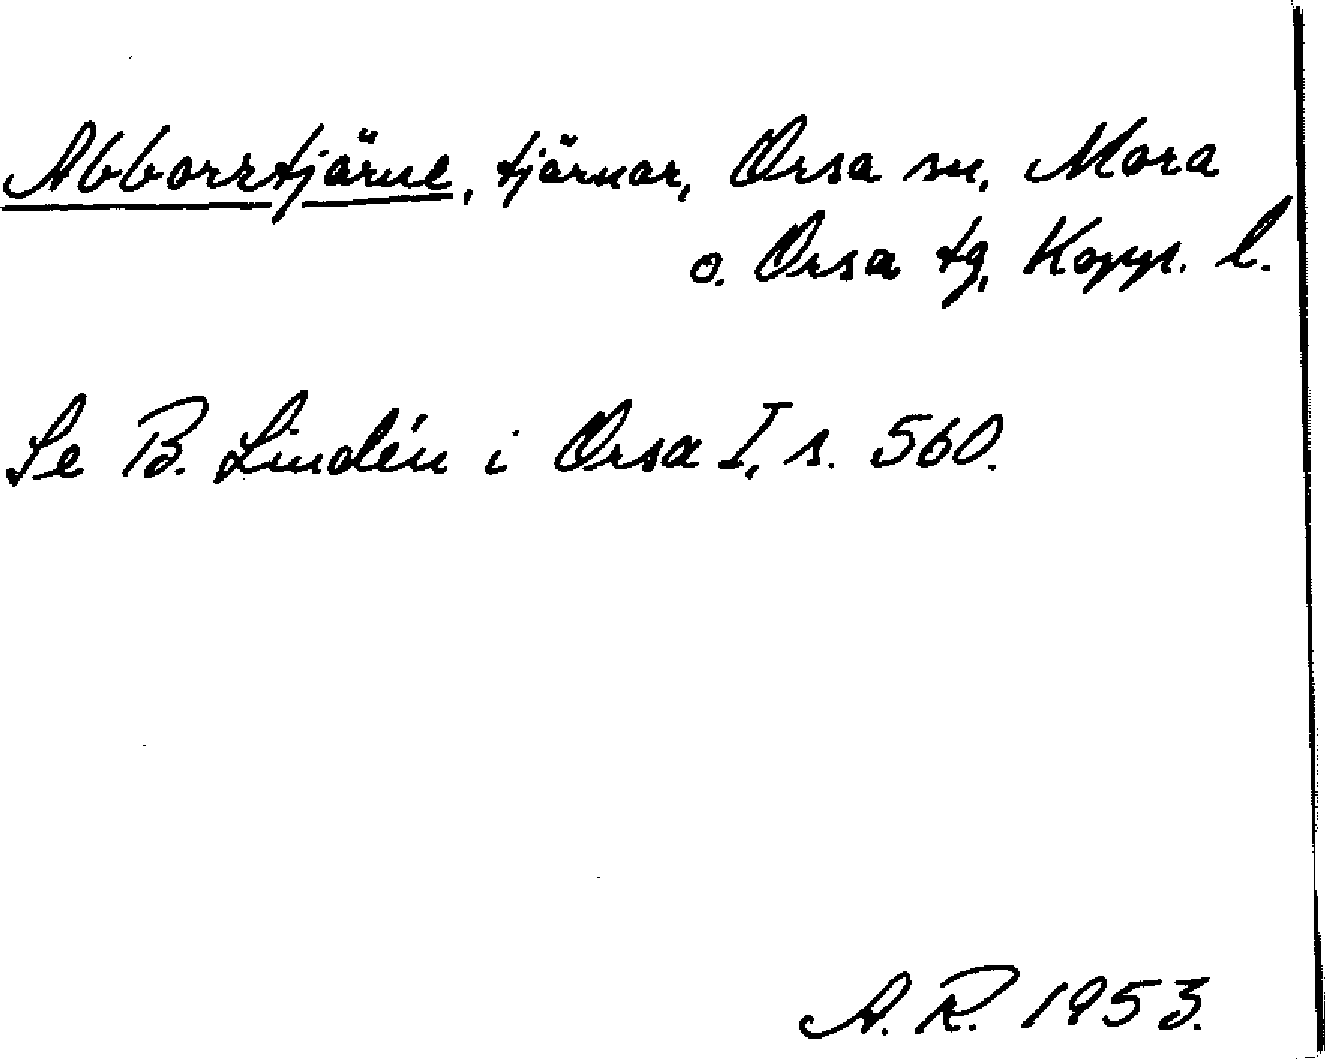 Abborrtjärne, tjärnar, Orsa sn, Mora
o. Orsa tg, Kopp. l.
Se B. Lindén i Orsa I, s. 560.
A. R. 1953.